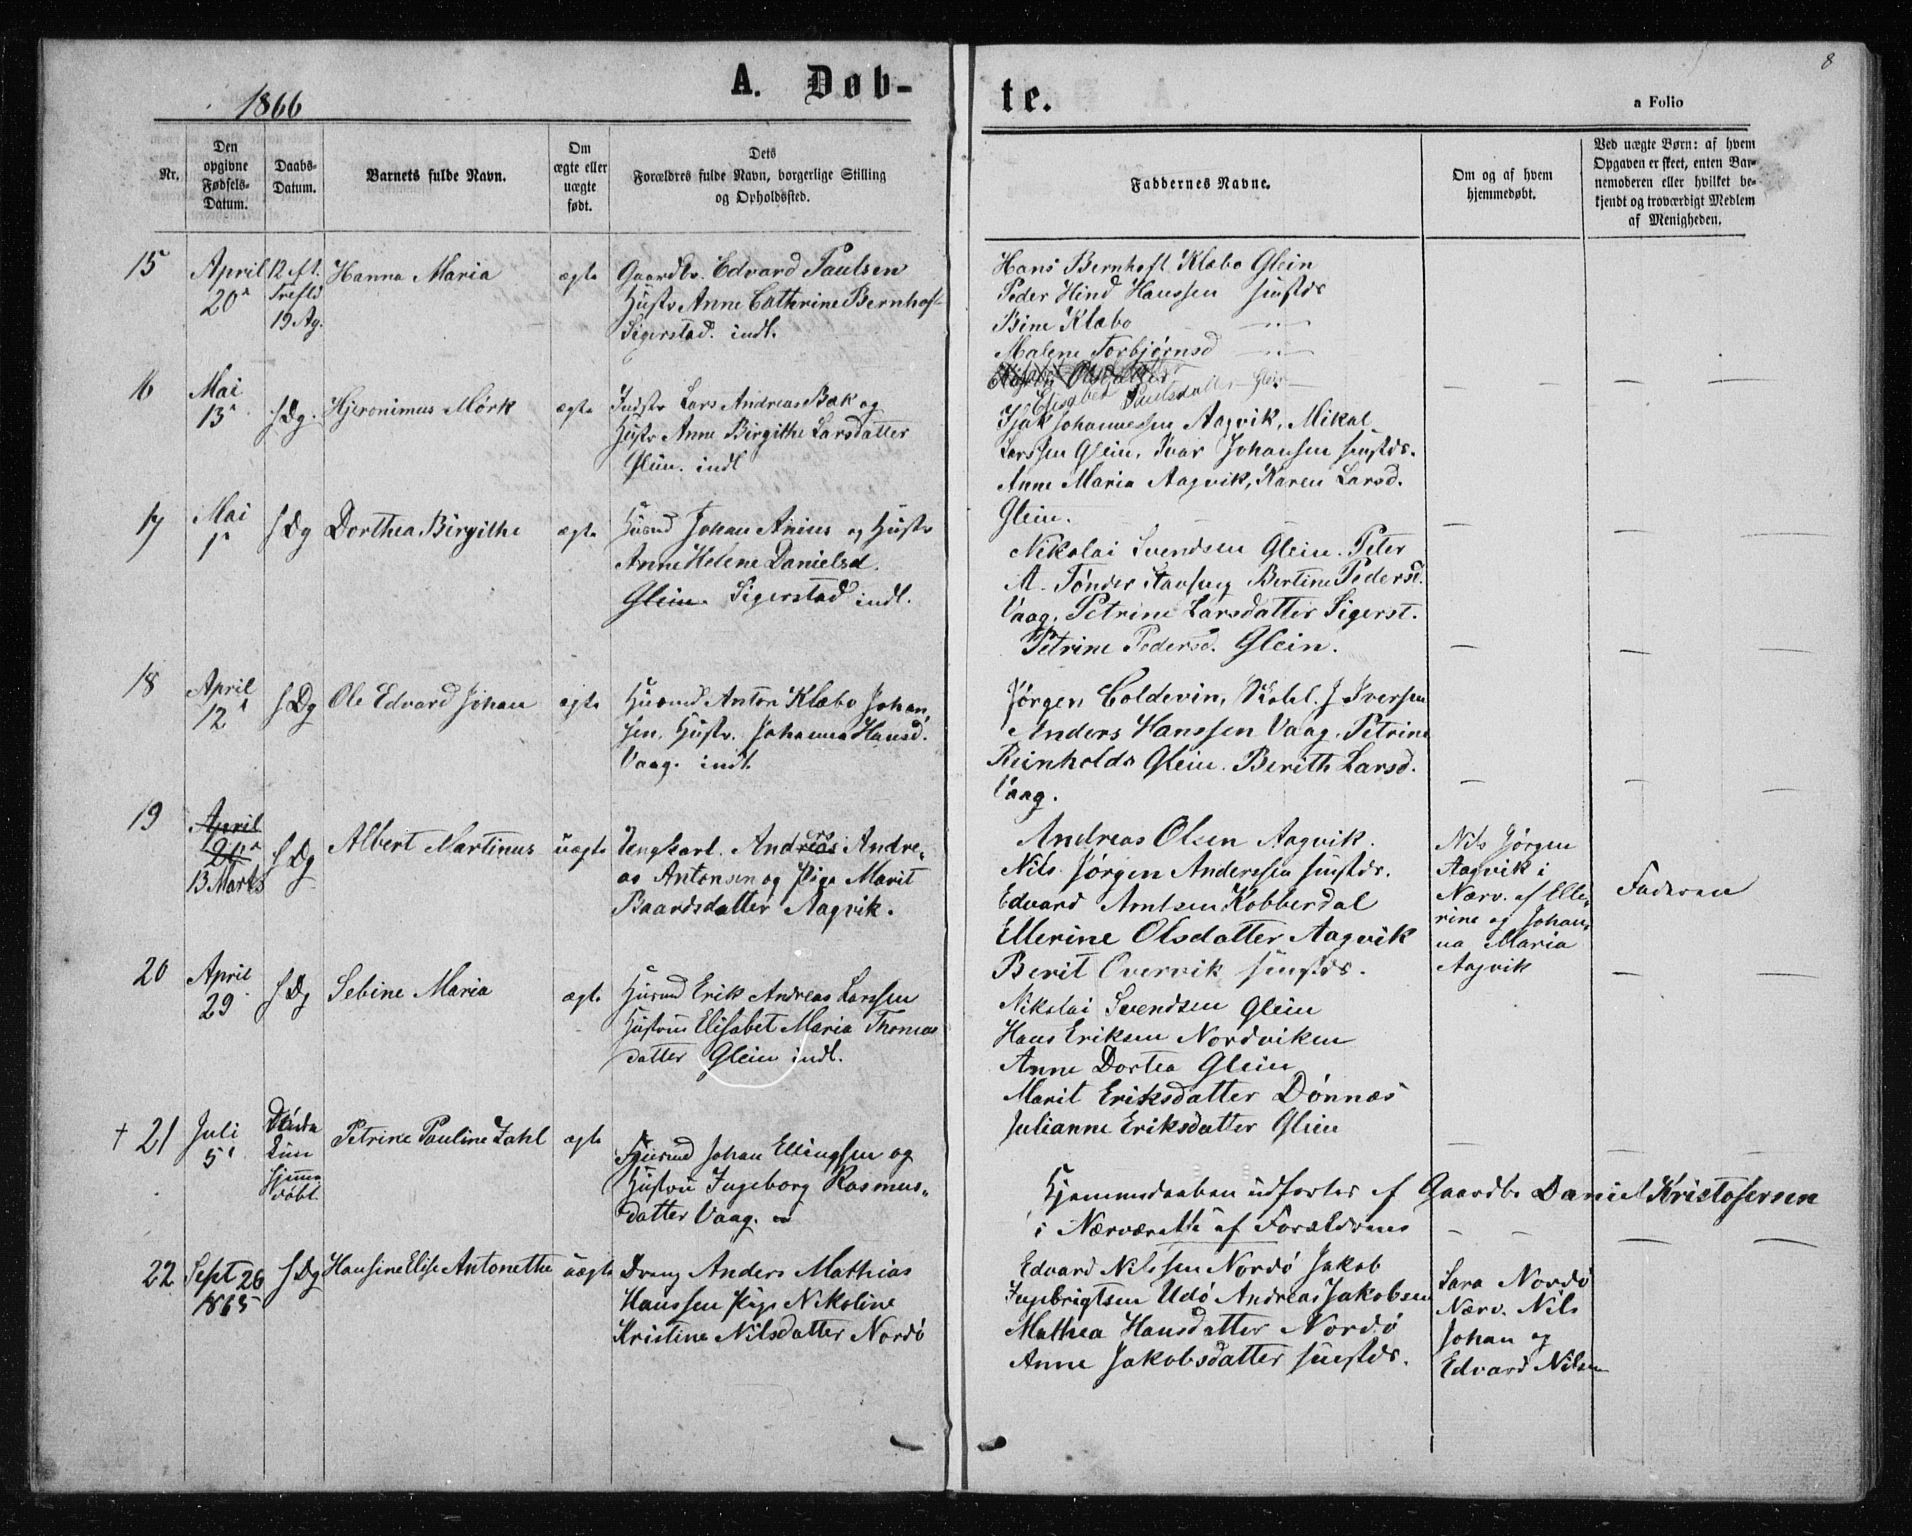 8
1866
A. Døb-
te.
a Folio
Nr.
Den
opgivne
Fødsels-
Datum.
Daabs-
Datum.
Barnets fulde Navn.
Om
ægte eller
uægte
født.
Dets
Forældres fulde Navn, borgerlige Stilling
og Opholdssted.
Faddernes Navne.
Om og af hvem
hjemmedøbt.
Ved uægte Børn: af hvem
Opgaven er skeet, enten Bar-
nemoderen eller hvilket be-
kjendt og troværdigt Medlem
af Menigheden.
15
April
20
12 eft.
Trefld
19 Ag.
Hanna Maria
ægte
Gaardbr. Edvard Paulsen
Hustr Anne Cathrine Bernhoft
Sigerstad. indl.
Hans Bernhoft Klæbo Glein
Peder Hind Hanssen sustds
Bine Klæbo
Malene Torbjørnsd
Elisabet Paulsdatter Glein
16
Mai
13
s Dg.
Hjeronimus Mörk
ægte
Indstr Lars Andreas Bæk og
Hustr Anne Birgithe Larsdatter
Glein. indl
Isak Johannessen Aagvik, Mikal
Larssen Glein, Ivar Johansen sustds.
Anne Maria Aagvik, Karen Larsd.
Glein.
17
Mai
1
s Dg
Dorthea Birgithe
ægte
Husmd Johan Anius og Hustr
Anne Helene Danielsd.
Glein. Sigerstad indl.
Nikolai Svendsen Glein. Peter
M. Tønder Bertine Pedersd.
Vaag. Petrine Larsdatter Sigerst.
Petrine Pedersd. Glein.
18
April
12
s Dg
Ole Edvard Johan
ægte
Husmd Anton Klæbo Johan
sen. Hustr. Johanna Hansd.
Vaag. indl.
Jørgen Coldevin, J Iversen
Anders Hanssen Vaag. Petrine
Reinholds Glein. Berith Larsd.
Vaag.
19
April
20
13 Marts
s Dg
Albert Martinus
uægte
Ungkarl. Anders Andre-
as Antonsen og Pige Marit
Baardsdatter Aagvik.
Andreas Olsen Aagvik.
Nils Jörgen Anderssen sustds.
Edvard Arntsen Kobberdal
Ellerine Olsdatter Aagvik
Berit Overvik sustds.
Nils Jörgen
Aagvik i
Nærv. af Elle-
rine og Johan-
na Maria
Aagvik
Faderen
20
April
29
s Dg
Sebine Maria
ægte
Husmd Erik Andreas Larssen
Hustru Elisabet Maria Thomas
datter Glein indl.
Nikolai Svendsen Glein
Hans Eriksen Nordviken
Anne Dortea Glein
Marit Eriksdatter Dönnæs
Julianne Eriksdatter Glein
+ 21
Juli
5
Hjemme
døbt
Petrine Pauline Zahl
ægte
Husmd Johan Ellingsen og
Hustru Ingeborg Rasmus-
datter Vaag.
Hjemmedaaben udførtes af Gaardbr Daniel Kristofersen
i Nærværelse af Forældrene
22
Sept 26
1865
s Dg
Hansine Elise Antonette
uægte
Dreng Anders Mathias
Hanssen Pige Nikoline
Kristine Nilsdatter Nordö
Edvard Nilssen Nordö Jakob
Ingebrigtsen Udö Andreas Jakobsen
Mathea Hansdatter Nordö
Anne Jakobsdatter sustds.
Sara Nordö
Nærv. Nils
Johan og
Edvard Nilsen